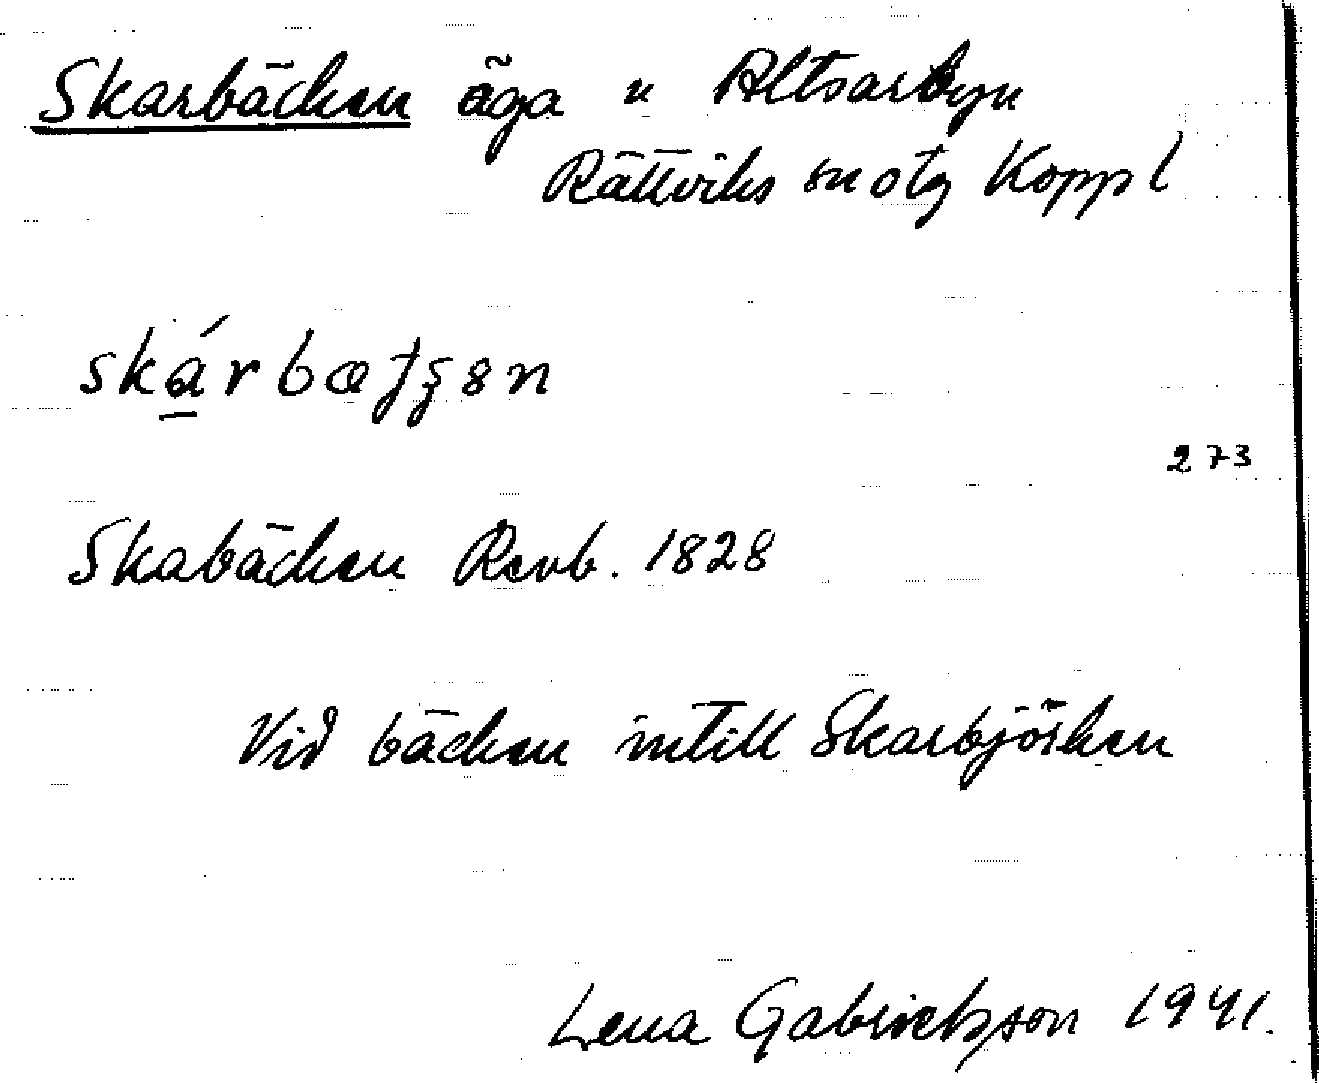 Skarbäcken äga u Altsarbyn
Rättviks sn o tg Koppl
skárbætʃən
273
Skabäcken Revb. 1828
Vid bäcken intill Skarbjösken
Lena Gabrielsson 1941.